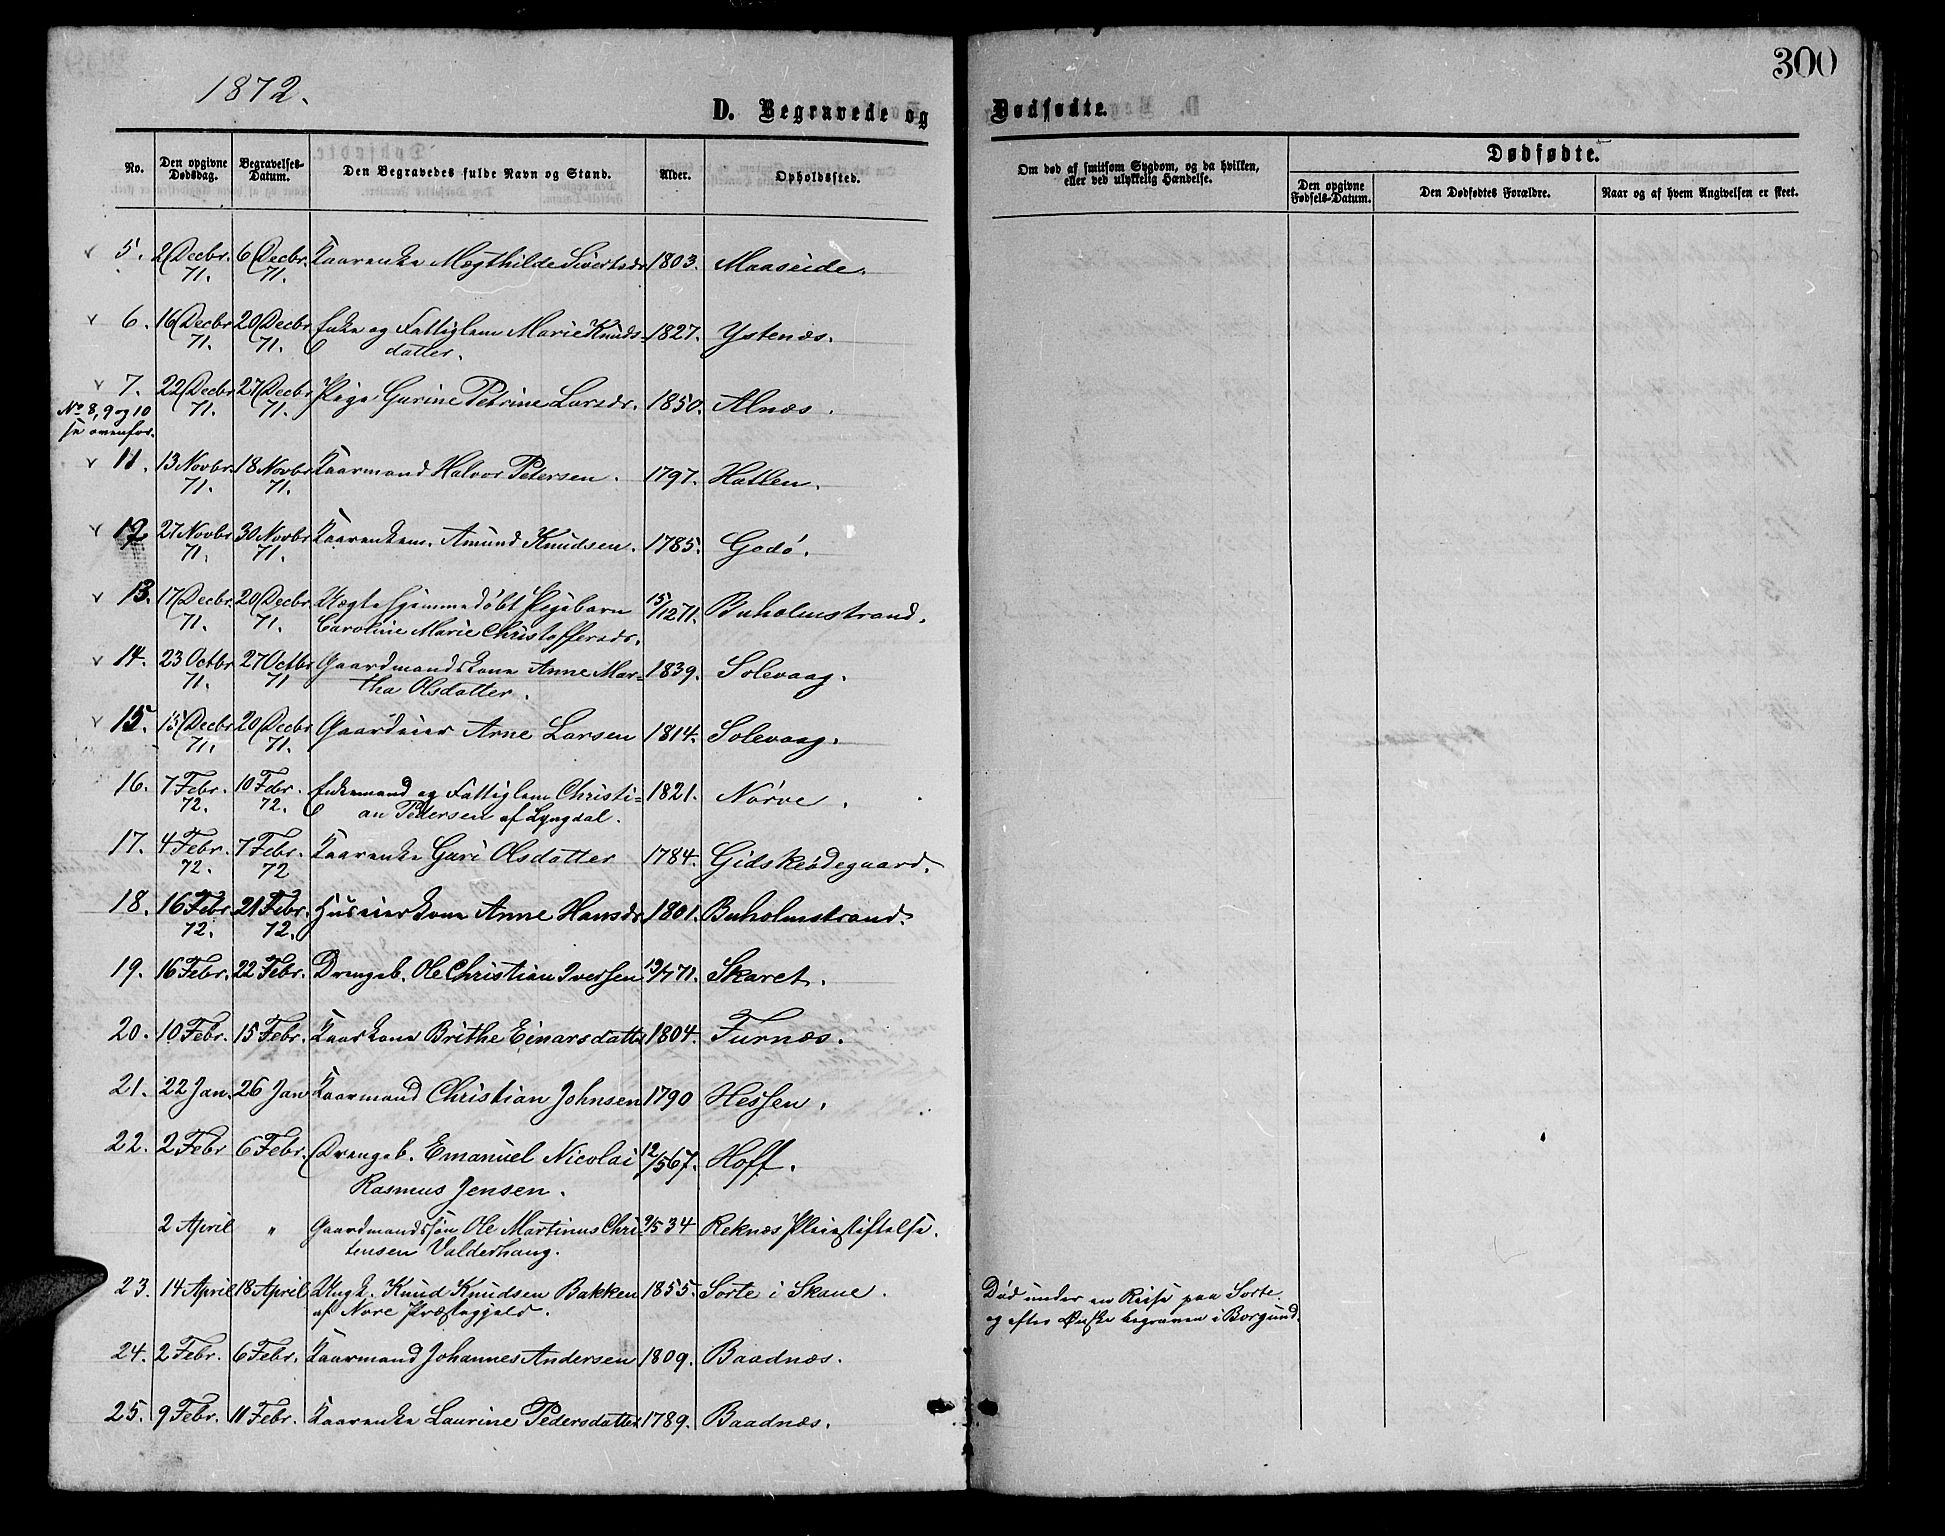 300
1872.
D. Begravede og Dødfødte.
No. Den opgivne Dødsdag. Begravelses-Datum. Den Begravedes fulde Navn og Stand. Alder. Opholdssted. Om død af smitsom Sygdom, og da hvilken, eller ved ulykkelig Hændelse. Dødfødte.
Den opgivne Fødsels-Datum. Den Dødfødtes Forældre. Naar og af hvem Angivelsen er skeet.
5. 2 Decbr. 71. 6 Decbr. 71. Kaarenke Mægthilde Sivertsdr 1803. Maaseide.
6. 16 Decbr 71. 20 Decbr. 71. Enke og Fattiglem Marie Knuds-
datter. 1827. Ystenæs.
7. 22 Decbr 71. 27 Decbr 71. Pige Gurine Petrine Larsdr. 1850. Alnæs.
No 8, 9 og 10
se ovenfor.
11. 13 Novbr. 71. 18 Novbr 71. Kaarmand Halvor Petersen. 1797. Hatlen.
12 27 Novbr 71. 30 Novbr 71. Kaarenkem. Amund Knudsen. 1785. Godø.
13. 17 Decbr. 71. 20 Decbr 71. Ægte hjemmedøbt Pigebarn 15/12 71. Buholmstrand.
Caroline Marie Christoffersdr.
14. 23 Octbr 71. 27 Octbr 71 Gaardmandskone Anne Mar-
tha Olsdatter. 1839. Solevaag.
15. 15 Decbr 71. 20 Decbr 71. Gaardeier Arne Larsen 1814. Solevaag.
16. 7 Febr. 72. 10 Febr. 72. Enkemand og Fattiglem Christi-
an Pedersen af Lyngdal. 1821. Nørve.
17. 4 Febr. 72. 7 Febr. 72 Kaarenke Guri Olsdatter 1784. Gidskeødegaard.
18. 16 Febr 72. 21 Febr. 72. Huseierkone Anne Hansdr 1801. Buholmstrand.
19. 16 Febr. 22 Febr. Drengeb. Ole Christian Iversen 19/7 71. Skaret.
20. 10 Febr. 15 Febr. Kaarkone Brithe Einarsdatter 1804. Furnæs.
21. 22 Jan. 26 Jan Kaarmand Christian Johnsen 1790 Hessen.
22. 2 Febr 6 Febr. Drengeb. Emanuel Nicolai 12/5 67. Hoff.
Rasmus Jensen.
2 April " Gaardmandssøn Ole Martinus Chri- 9/5 34 Reknæs Pleiestiftelse.
stensen Valderhaug.
23. 14 April 18 April Ungk. Knud Knudsen Bakken 1855. Sorte i Skaue. Død under en Reise paa Sorte
af Nore Præstegjeld. og efter Ønske begraven i Borgund.
24. 2 Febr. 6 Febr. Kaarmand Johannes Andersen 1809. Baadnæs.
25. 9 Febr. 11 Febr. Kaarenke Laurine Pedersdatter 1789. Baadnæs.